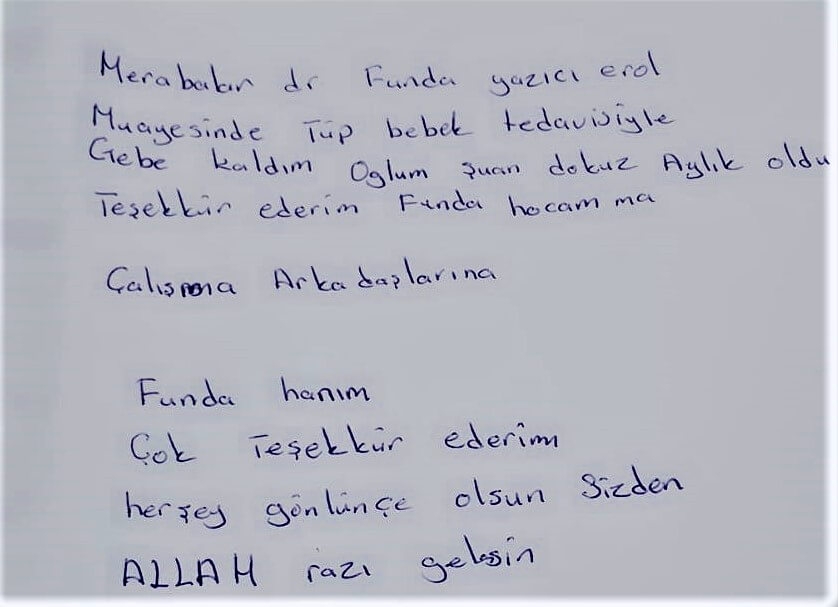 Merabalar dr Funda yazıcı erol
Muayesinde Tüp bebek tedavisiyle
Gebe kaldım Oglum şuan dokuz Aylık oldu
Teşekkür ederim Funda hocam ma
Çalışma Arkadaşlarına
Funda hanım
Çok Teşekkür ederim
herşey gönlünçe olsun Sizden
ALLAH razı gelsin